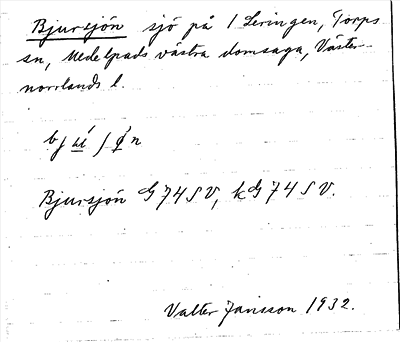 Bjursjön sjö på 1 Leringen, Torps
sn, Medelpads västra domsaga, Väster-
norrlands l.
Bjursjön G 74 SV, kG 74 SV.
Valter Jansson 1932.